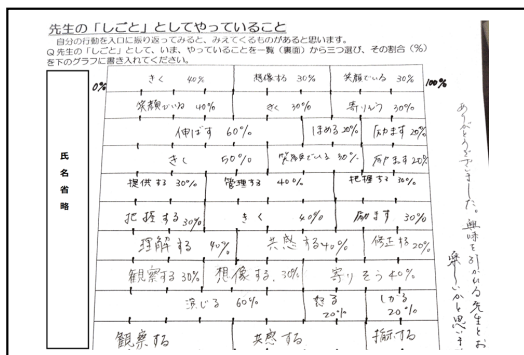 先生の「しごと」としてやっていること
自分の行動を入口に振り返ってみると、みえてくるものがあると思います。
Q 先生の「しごと」として、いま、やっていることを一覧（裏面）から三つ選び、その割合（%）
を下のグラフに書き入れてください。
0% 100%
氏名省略
きく 40% 想像する 30% 笑顔でいる 30%
笑顔でいる 40% きく 30% 寄りそう 30%
伸ばす 60% ほめる 20% 励ます 20%
きく 50% 笑顔でいる 30% 励ます 20%
提供する 30% 管理する 40% 把握する 30%
把握する 30% きく 40% 励ます 30%
理解する 40% 共感する 40% 修正する 20%
観察する 30% 想像する 30% 寄りそう 40%
演じる 60% 怒る 20% しかる 20%
観察する 共感する 指示する
ありがとうございました。興味を引かれる先生とお
楽しいかと思いま